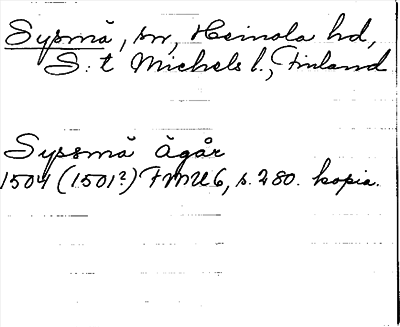 Sysmä, sn, Heinola hd,
S:t Michels l., Finland
Syssmä ägår
1504 (1501?) FMU 6, s. 280. kopia.